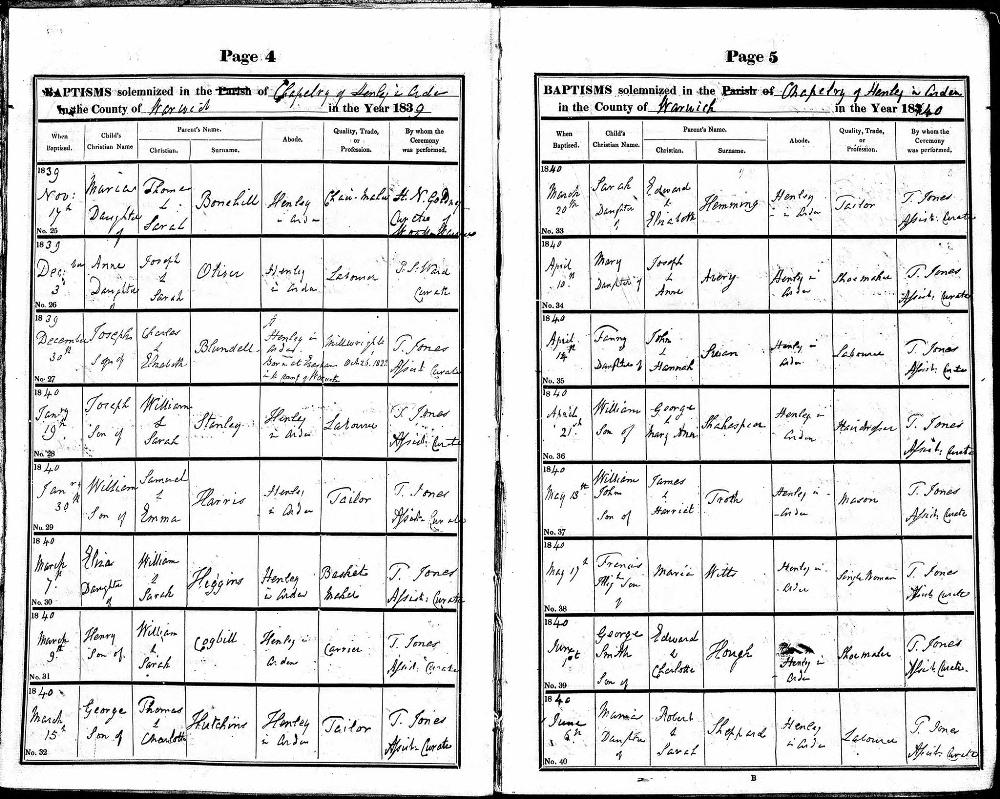 Page 4
BAPTISMS solemnized in the Parish of Chapelry of Henley in Arden
in the County of Warwick in the Year 1839
When Baptized.
Child's Christian Name
Parent's Name.
Christian.
Surname.
Abode.
Quality, Trade, or Profession.
By whom the Ceremony was performed.
1839 Nov: 17th No. 25 Maria Daughter of Thomas & Sarah Bonehill Henley in Arden Chair-maker H. N. Curate
1839 Dec: 3d No. 26 Anne Daughter Joseph & Sarah Oliver Henley in Arden Labourer Ward Curate
1839 December 30th No. 27 Joseph Son of Charles & Elizabeth Blundell Henley in Arden Born at in the county of Warwick Octr. Millwright T. Jones Assist. Curate
1840 Jany 19th No. 28 Joseph Son of William & Sarah Stanley Henley in Arden Labourer T. Jones Assist: Curate
1840 Janry 30 No. 29 William Son of Samuel & Emma Harris Henley in Arden Tailor T. Jones Assist: Curate
1840 March 7th No. 30 Eliza Daughter of William & Sarah Higgins Henley in Arden Basket Maker T. Jones Assist: Curate
1840 March 9th No. 31 Henry Son of William & Sarah Cogbill Henley in Arden Carrier T. Jones Assist: Curate
1840 March 15th No. 32 George Son of Thomas & Charlotte Hutchins Henley in Arden Tailor T. Jones Assist: Curate
Page 5
BAPTISMS solemnized in the Parish of Chapelry of Henley in Arden
in the County of Warwick in the Year 1840
When Baptized.
Child's Christian Name.
Parent's Name.
Christian.
Surname.
Abode.
Quality, Trade, or Profession.
By whom the Ceremony was performed.
1840 March 20th No. 33 Sarah Daughter of Edward & Elizabeth Hemming Henley in Arden Tailor T. Jones Assist: Curate
1840 April 10th No. 34 Mary Daughter of Joseph & Anne Avery Henley in Arden Shoemaker T. Jones Assist: Curate
1840 April No. 35 Fanny Daughter of John & Hannah Swan Henley in Arden Labourer T. Jones Assist: Curate
1840 April 21st No. 36 William Son of George & Mary Ann Shakespear Henley in Arden Hairdresser T. Jones Assist: Curate
1840 May 13th No. 37 William John Son of James & Harriet Troth Henley in Arden Mason T. Jones Assist: Curate
1840 May 17th No. 38 Francis Illegt Son of Maria Witts Henley in Arden Single Woman T. Jones Assist: Curate
1840 June 1st No. 39 George Smith Son of Edward & Charlotte Hough Henley in Arden Shoemaker T. Jones Assist: Curate
1840 June 6th No. 40 Maria Daughter of Robert & Sarah Sheppard Henley in Arden Labourer T. Jones Assist: Curate
B